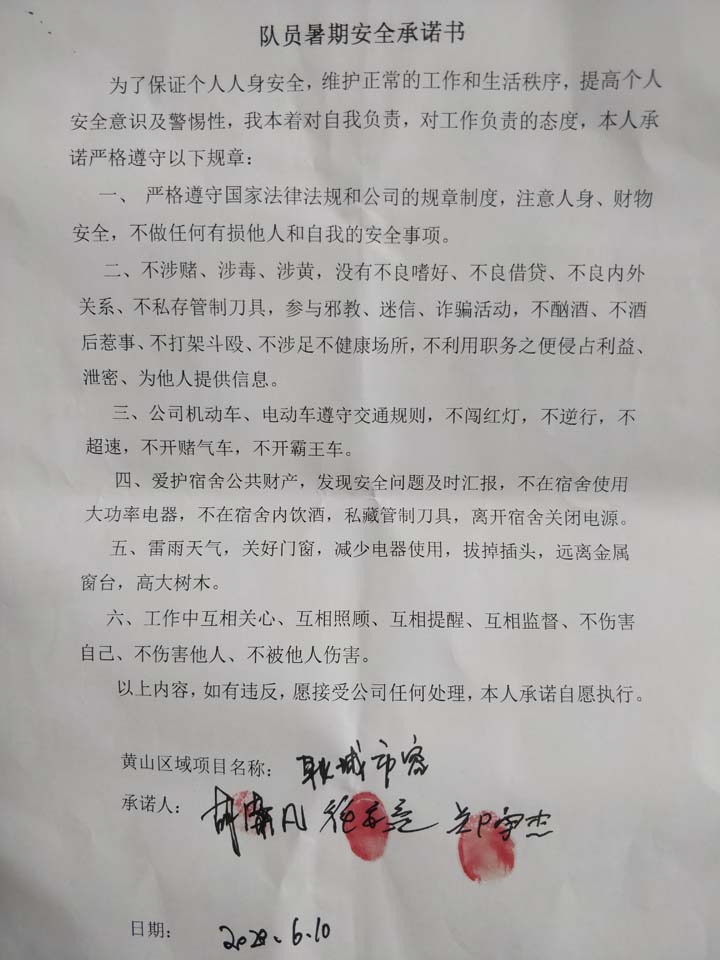 队员暑期安全承诺书
为了保证个人人身安全，维护正常的工作和生活秩序，提高个人
安全意识及警惕性，我本着对自我负责，对工作负责的态度，本人承
诺严格遵守以下规章：
一、 严格遵守国家法律法规和公司的规章制度，注意人身、财物
安全，不做任何有损他人和自我的安全事项。
二、不涉赌、涉毒、涉黄，没有不良嗜好、不良借贷、不良内外
关系、不私存管制刀具，参与邪教、迷信、诈骗活动，不酗酒、不酒
后惹事、不打架斗殴、不涉足不健康场所，不利用职务之便侵占利益、
泄密、为他人提供信息。
三、公司机动车、电动车遵守交通规则，不闯红灯，不逆行，不
超速，不开赌气车，不开霸王车。
四、爱护宿舍公共财产，发现安全问题及时汇报，不在宿舍使用
大功率电器，不在宿舍内饮酒，私藏管制刀具，离开宿舍关闭电源。
五、雷雨天气，关好门窗，减少电器使用，拔掉插头，远离金属
窗台，高大树木。
六、工作中互相关心、互相照顾、互相提醒、互相监督、不伤害
自己、不伤害他人、不被他人伤害。
以上内容，如有违反，愿接受公司任何处理，本人承诺自愿执行。
黄山区域项目名称：
承诺人：
日期： 2020.6.10